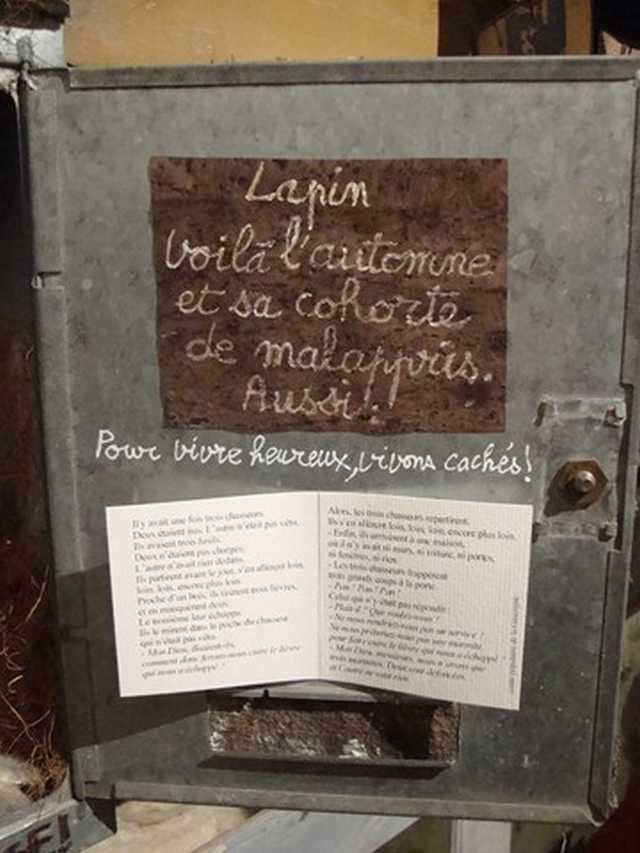 Lapin
Voilà l'automne
et sa cohorte
de malappris.
Aussi:
Pour vivre heureux, vivons cachés!
Il y avait une fois trois chasseurs.
Deux étaient nus. L'autre n'était pas vêtu.
Ils avaient trois fusils.
Deux n'étaient pas chargés.
L'autre n'avait rien dedans.
Ils partirent avant le jour, s'en allèrent loin,
loin, loin, encore plus loin.
Proche d'un bois, ils tirèrent trois lièvres,
et en manquèrent deux.
Le troisième leur échappa.
Ils le mirent dans la poche du chasseur
qui n'était pas vêtu.
- Mon Dieu, disaient-ils,
comment donc ferons-nous cuire le lièvre
qui nous a échappé ?
Alors, les trois chasseurs repartirent.
Ils s'en allèrent loin, loin, loin, encore plus loin.
- Enfin, ils arrivèrent à une maison,
où il n'y avait ni murs, ni toiture, ni portes,
ni fenêtres, ni rien.
- Les trois chasseurs frappèrent
trois grands coups à la porte.
- Pan ! Pan ! Pan !
Celui qui n'y était pas répondit :
- Plaît-il ? Que voulez-vous ?
- Ne nous rendriez-vous pas un service ?
Ne nous prêteriez-vous pas une marmite,
pour faire cuire le lièvre qui nous a échappé ?
- Mon Dieu, messieurs, nous n'avons que
trois marmites. Deux sont défoncées,
et l'autre ne vaut rien.
conte populaire de la Gascogne
SE!